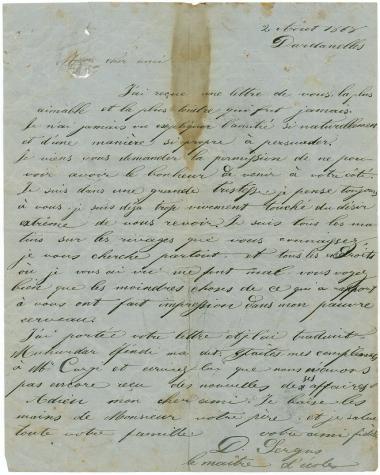 2 Août 1868
Dardanelles
Mon cher ami
J'ai reçue une lettre de vous, la plus
aimable et la plus tendre qui fut jamais.
Je n'ai jamais vu expliquer l'amitié si naturellement
et d'une manière si propre à persuader.
Je viens vous demander la permission de ne pou-
voir avoir le bonheur de venir à votre côté.
Je suis dans une grande tristesse, je pense toujours
à vous, je suis déja trop vivement touché du désir
extrême de vous revoir. Je suis tous les ma-
tins sur les rivages que vous connaissez
je vous cherche partout et tous les endroits
où je vous ai vu me font mal vous voyez
bien que les moindres choses de ce qui a rapport
à vous ont fait impression dans mon pauvre
cerveau.
J'ai portée votre lettre et j'ai traduit.
Muhurdar effendi m'a dit. Faites mes compliments
à Mr. et écrivez lui que nous n'avons
pas encore reçu des nouvelles de ses affaires
Adieu mon cher ami. Je baise les
mains de Monsieur votre père et je salue
toute votre famille votre ami fidèle
D. Sergus
le maître d'école